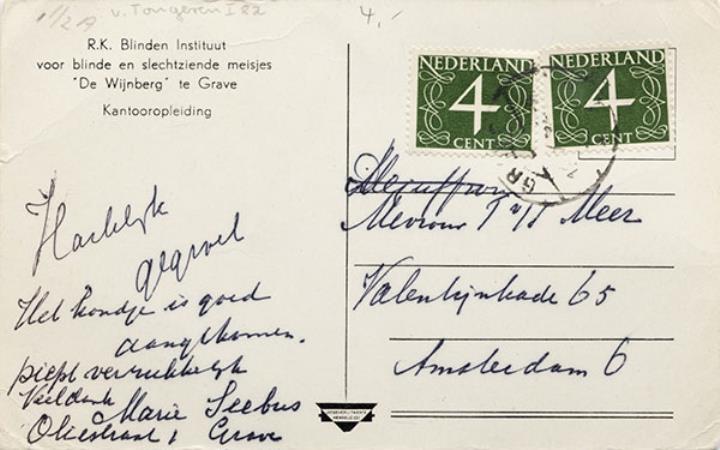 v. Tongeren I 82
4,-
R.K. Blinden Instituut
voor blinde en slechtziende meisjes
"De Wijnberg" te Grave
Kantooropleiding
NEDERLAND
4
CENT
NEDERLAND
4
CENT
GR
Hartelijk
gegroet
Het hondje is goed
aangekomen.
piept verrukkelijk
Veel dank
Marie Seebus
Oliestraat 1 Grave
Mevrouw T v/d Meer
Valentijnkade 65
Amsterdam 6